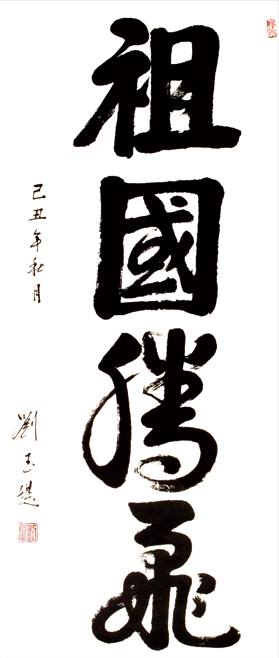 祖國騰飛
己丑年秋月
劉玉堤